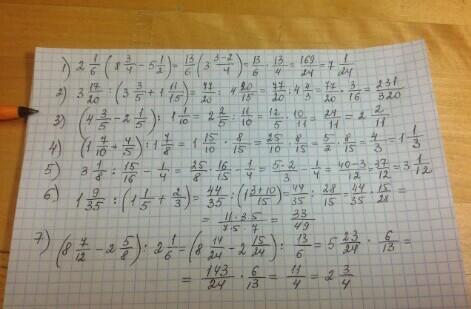 1) 2 1/6 (8 3/4 - 5 1/2) = 13/6 (3 (3-2)/4) = 13/6 · 13/4 = 169/24 = 7 1/24
2) 3 17/20 : (3 3/5 + 1 11/15) = 77/20 : 4 20/15 = 77/20 : 4 4/3 = 77/20 · 3/16 = 231/320
3) (4 3/5 - 2 1/5) : 1 1/10 = 2 2/5 : 11/10 = 12/5 · 10/11 = 24/11 = 2 2/11
4) (1 7/10 + 4/5) : 1 7/8 = 1 15/10 · 8/15 = 25/10 · 8/15 = 5/2 · 8/15 = 4/3 = 1 1/3
5) 3 1/8 : 15/16 - 1/4 = 25/8 · 16/15 - 1/4 = 5·2/3 - 1/4 = 40-3/12 = 37/12 = 3 1/12
6) 1 9/35 : (1 1/5 + 2/3) = 44/35 : (1 3+10/15) = 44/35 : 28/15 = 44/35 · 15/28 =
= 11·3·5/7·5·7 = 33/49
7) (8 7/12 - 2 5/8) : 2 1/6 = (8 14/24 - 2 15/24) : 13/6 = 5 23/24 · 6/13 =
= 143/24 · 6/13 = 11/4 = 2 3/4